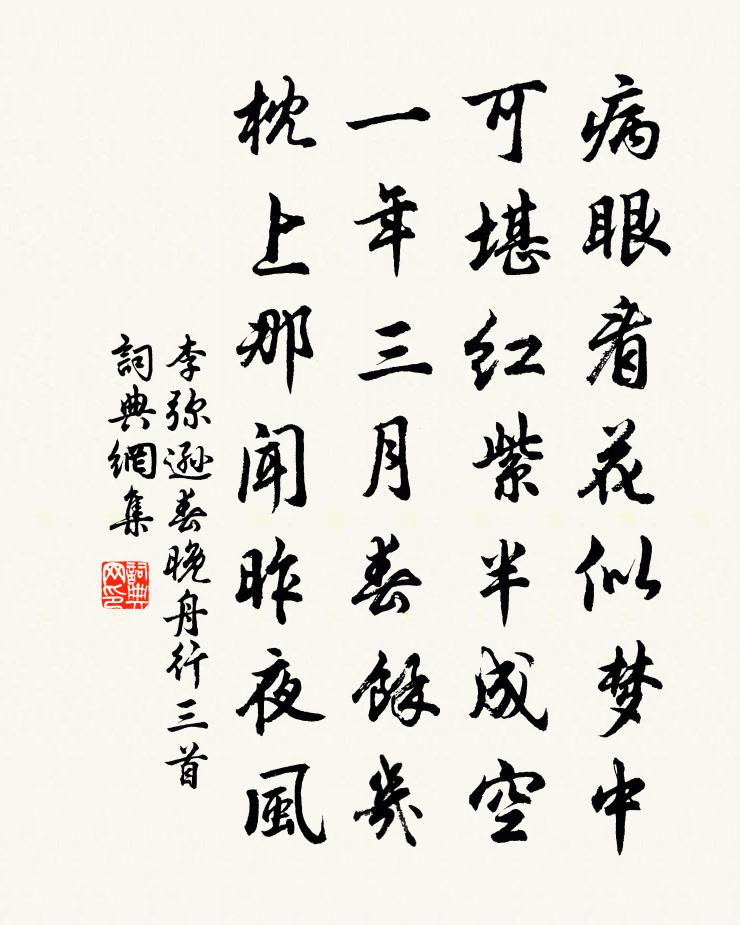 病眼看花似梦中
可堪红紫半成空
一年三月春餘幾
枕上那闻昨夜風
李弥遜春晚舟行三首
詞典網集
詞典网印